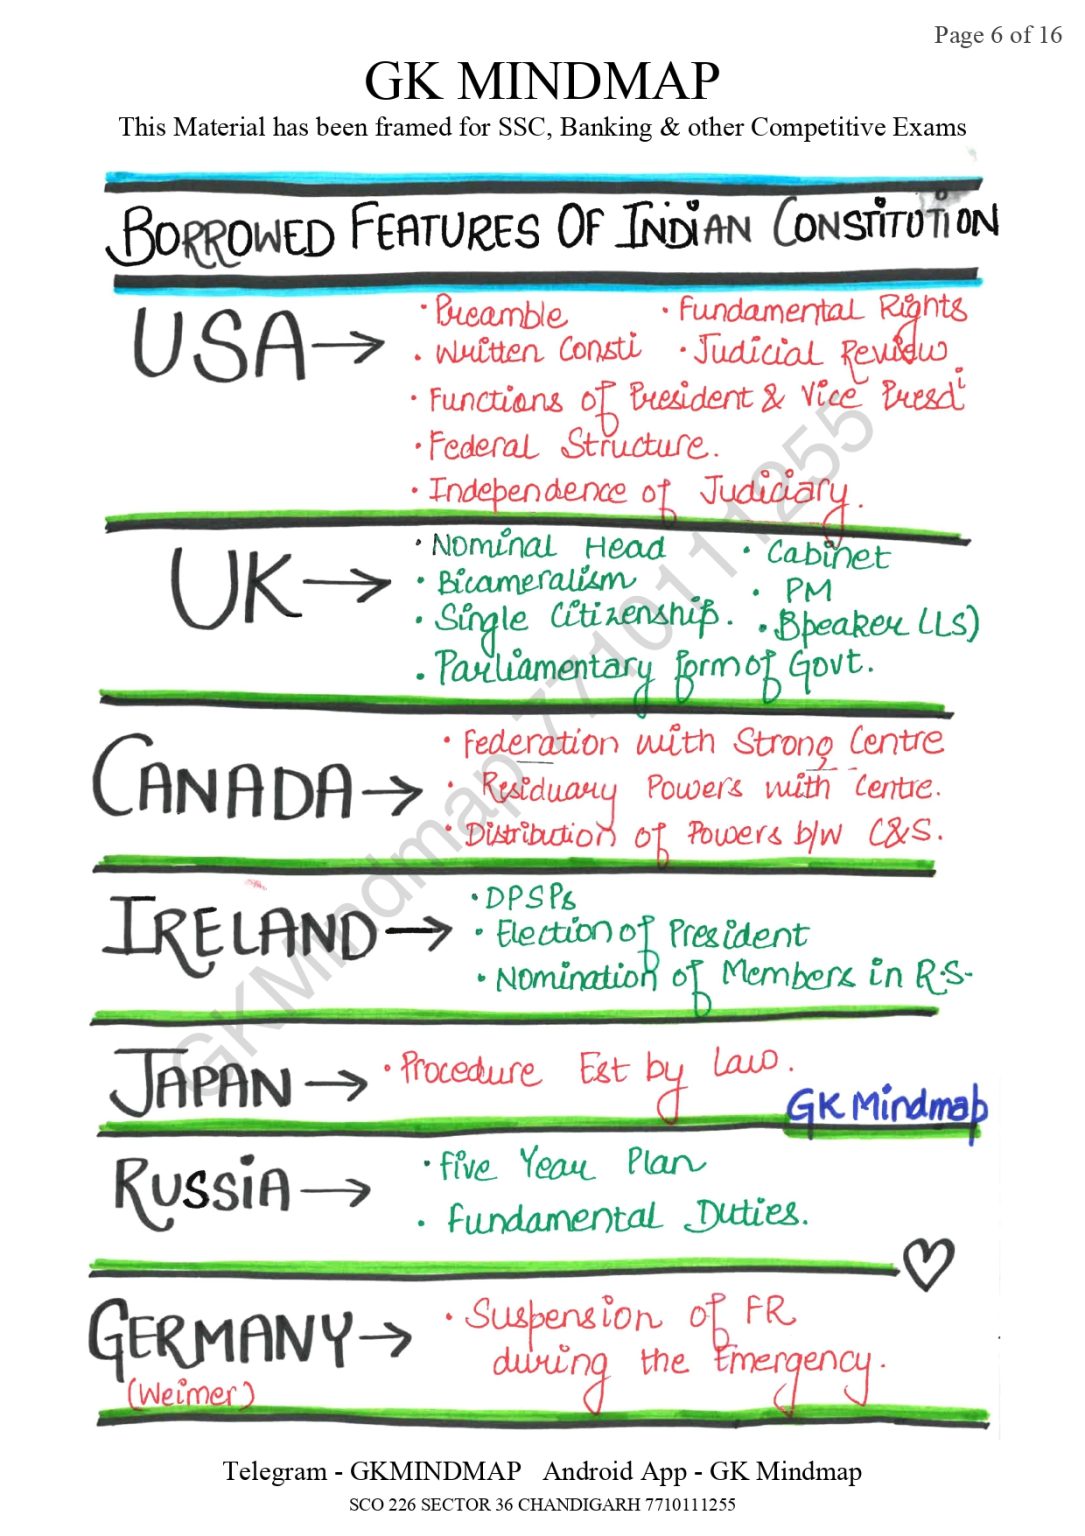 Page 6 of 16
GK MINDMAP
This Material has been framed for SSC, Banking & other Competitive Exams
BORROWED FEATURES OF INDIAN CONSTITUTION
USA →
· Preamble · Fundamental Rights
· Written Consti · Judicial Review
· Functions of President & Vice Presdi
· Federal Structure.
· Independence of Judiciary.
UK →
· Nominal Head · Cabinet
· Bicameralism · PM
· Single Citizenship. · Speaker (LS)
· Parliamentary form of Govt.
CANADA →
· Federation with Strong Centre
· Residuary Powers with Centre.
· Distribution of Powers b/w C&S.
IRELAND →
· DPSPs
· Election of President
· Nomination of Members in R.S.
JAPAN → · Procedure Est by Law.
GK Mindmap
RUSSIA →
· Five Year Plan
· Fundamental Duties.
GERMANY →
(Weimer)
· Suspension of FR
during the Emergency.
GKMindmap 7710111255
Telegram - GKMINDMAP Android App - GK Mindmap
SCO 226 SECTOR 36 CHANDIGARH 7710111255